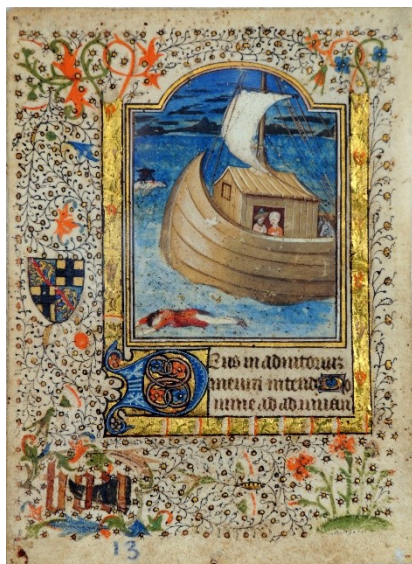 Deus in adiutorium
meum intende Do
mine ad adiuuan
13